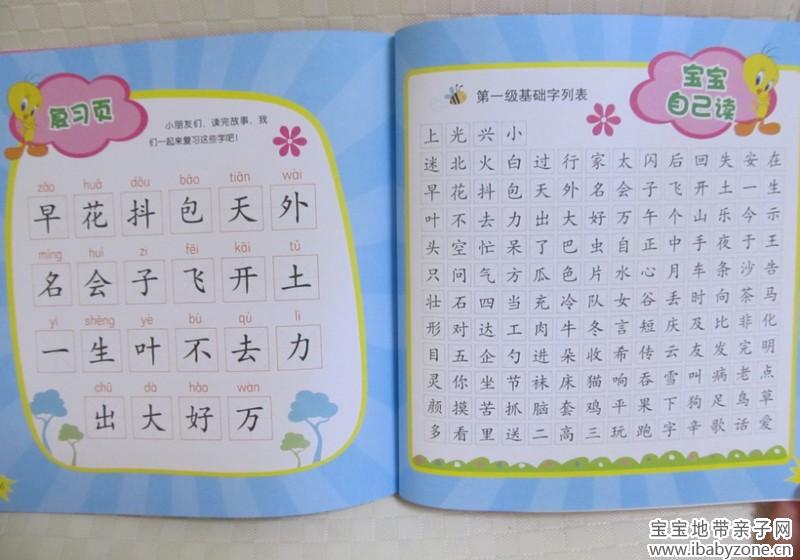 复习页
小朋友们，读完故事，我
们一起来复习这些字吧！
zǎo huā dǒu bāo tiān wài
早 花 抖 包 天 外
míng huì zǐ fēi kāi tǔ
名 会 子 飞 开 土
yī shēng yè bù qù lì
一 生 叶 不 去 力
chū dà hǎo wàn
出 大 好 万
宝宝
自己读
第一级基础字列表
上 光 兴 小
迷 北 火 白 过 行 家 太 闪 后 回 失 安 在
早 花 抖 包 天 外 名 会 子 飞 开 土 一 生
叶 不 去 力 出 大 好 万 午 个 山 乐 今 示
头 空 忙 呆 了 巴 虫 自 正 中 手 夜 于 王
只 问 气 方 瓜 色 片 水 心 月 车 条 沙 告
壮 石 四 当 充 冷 队 女 谷 丢 时 向 茶 马
形 对 达 工 肉 牛 冬 言 短 庆 及 比 非 化
目 五 企 勺 进 朵 收 希 传 云 友 发 完 明
灵 你 坐 节 袜 床 猫 响 吞 雪 叫 病 老 点
颜 摸 苦 抓 脑 套 鸡 平 果 下 狗 足 鸟 草
多 看 里 送 二 高 三 玩 跑 字 辛 歌 话 爱
宝宝地带亲子网
www.ibabyzone.cn